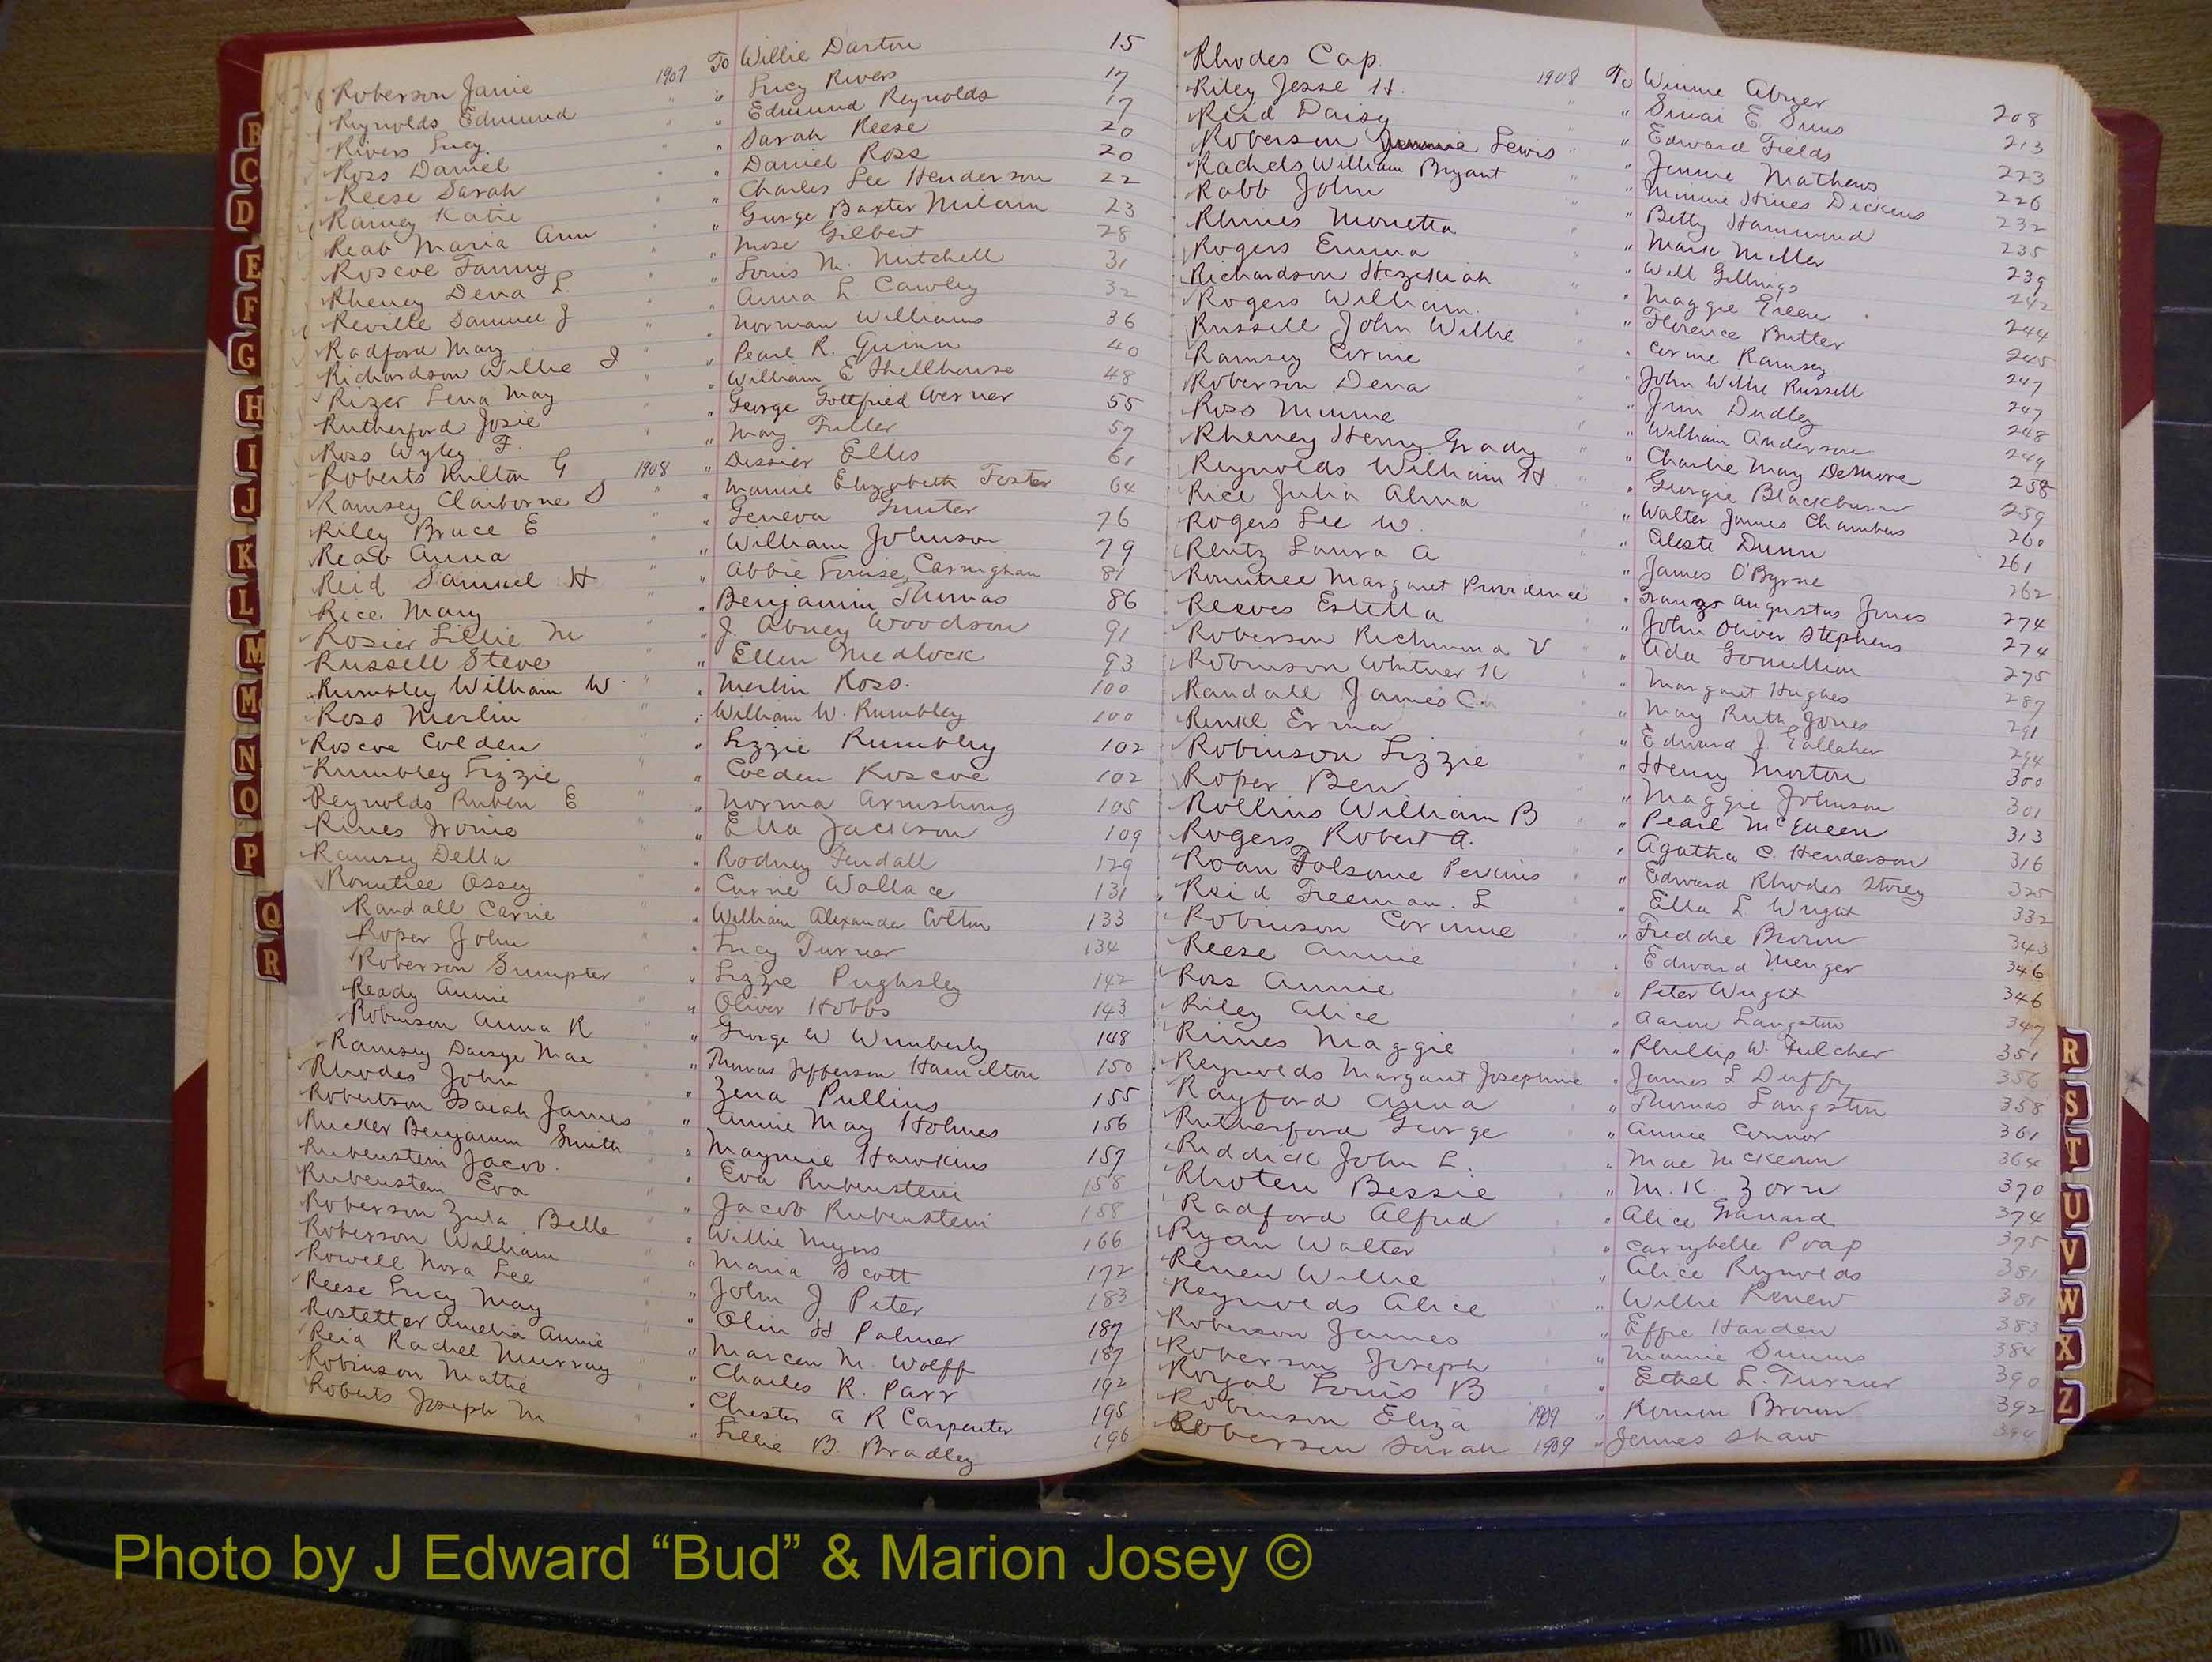 Roberson Janie 1907 To Willie Darton 15
Reynolds Edmund " " Lucy Rivers 17
Rivers Lucy " " Edmund Reynolds 17
Ross Daniel " " Sarah Reese 20
Reese Sarah " " Daniel Ross 20
Rainey Katie " " Charles Lee Henderson 22
Reab Maria Ann " " George Baxter Milam 23
Roscoe Fanny " " Mose Gilbert 28
Rheney Dena L. " " Louis M. Mitchell 31
Reville Samuel J " " Anna L. Cawley 32
Radford May " " Norman Williams 36
Richardson Willie J " " Pearl R. Gunn 40
Rizer Lena May " " William E Shellhouse 48
Rutherford Josie " " George Gottfried Werner 55
Ross Wyley F. " " May Fuller 57
Roberts Hilton G 1908 " Dessier Ellis 61
Ramsey Claiborne S " " Mamie Elizabeth Foster 64
Riley Bruce E " " Geneva Gunter 76
Reab Anna " " William Johnson 79
Reid Samuel H " " Abbie Louise Carnighan 81
Rice Mary " " Benjamin Thomas 86
Rosier Lillie M " " J. Abney Woodson 91
Russell Steve " " Ellen Medlock 93
Rumbley William W. " " Merlin Ross. 100
Ross Merlin " " William W. Rumbley 100
Roscoe Colden " " Lizzie Rumbley 102
Rumbley Lizzie " " Colden Roscoe 102
Reynolds Ruben E " " Norma Armstrong 105
Rines Ironie " " Ella Jackson 109
Ramsey Della " " Rodney Tendall 129
Rountree Ossey " " Carrie Wallace 131
Randall Carrie " " William Alexander Colton 133
Roper John " " Lucy Turner 134
Roberson Sumpter " " Lizzie Pughsley 142
Ready Annie " " Oliver Hobbs 143
Robinson Anna R " " George W Wimberly 148
Ramsey Daisye Mae " " Thomas Jefferson Hamilton 150
Rhodes John " " Zena Pullins 155
Robertson Isaiah James " " Annie May Holmes 156
Rucker Benjamin Smith " " Maymie Hawkins 157
Rubenstein Jacob. " " Eva Rubenstein 158
Rubenstein Eva " " Jacob Rubenstein 158
Roberson Zula Belle " " Willie Myers 166
Roberson William " " Maria Scott 172
Rowell Nora Lee " " John J Peter 183
Reese Lucy May " " Olin H Palmer 187
Rostetter Amelia Annie " " Marcen M. Wolff 187
Reid Rachel Murray " " Charles R. Parr 192
Robinson Mattie " " Chester A R Carpenter 195
Roberts Joseph M " " Lillie B. Bradley 196
Rhodes Cap. 1908 To Winnie Abner 208
Riley Jesse H. " " Sinai E Sims 213
Reid Daisy " " Edward Fields 223
Roberson Lewis " " Jannie Mathews 226
Rachels William Bryant " " Minnie Hines Dickens 232
Robb John " " Betty Hammond 235
Rhines Monetta " " Mark Miller 239
Rogers Emma " " Will Gillings 242
Richardson Hezekiah " " Maggie Green 244
Rogers William " " Florence Butler 245
Russell John Willie " " Corine Ramsey 247
Ramsey Corine " " John Willie Russell 247
Roberson Dena " " Jim Dudley 248
Ross Minnie " " William Anderson 249
Rheney Henry Grady " " Charlie May DeMore 258
Reynolds William H " " Georgie Blackburn 259
Rice Julia Alma " " Walter James Chambers 260
Rogers Lee W. " " Celeste Dunn 261
Rentz Laura A " " James O'Byrne 262
Rountree Margaret Providence " Augustus Jones 274
Reeves Estella " " John Oliver Stephens 274
Roberson Richmond V " " Ada Gomillion 275
Robinson Whitner K " " Margaret Hughes 287
Randall James C. " " May Ruth Jones 291
Renkl Erma " " Edward J. Gallaher 294
Robinson Lizzie " " Henry Morton 300
Roper Ben " " Maggie Johnson 301
Rollins William B " " Pearl McQueen 313
Rogers Robert A. " " Agatha C. Henderson 316
Roan Folsome Perkins " " Edward Rhodes Storey 325
Reid Freeman. L " " Ella L Wright 332
Robinson Corinne " " Freddie Brown 343
Reese Annie " " Edward Menger 346
Ross Annie " " Peter Wright 346
Riley Alice " " Aaron Langston 347
Rines Maggie " " Phillip W. Fulcher 351
Reynolds Margaret Josephine " James L Duffy 356
Rayford Anna " " Thomas Langston 358
Rutherford George " " Annie Connor 361
Riddick John L. " " Mae McKeown 364
Rhoten Bessie " " M. K. Zorn 370
Radford Alfred " " Alice Granard 374
Ryan Walter " " Carrybelle Poap 375
Renew Willie " " Alice Reynolds 381
Reynolds Alice " " Willie Renew 381
Roberson James " " Effie Harden 383
Roberson Joseph " " Minnie Simms 384
Royal Louis B " " Ethel L. Turner 390
Robinson Eliza 1909 " Brown 392
Roberson Sarah 1909 " James Shaw 394
B
C
D
E
F
G
H
I
J
K
L
M
M
N
O
P
Q
R
R
S
T
U
V
W
X
Z
Photo by J Edward “Bud” & Marion Josey ©